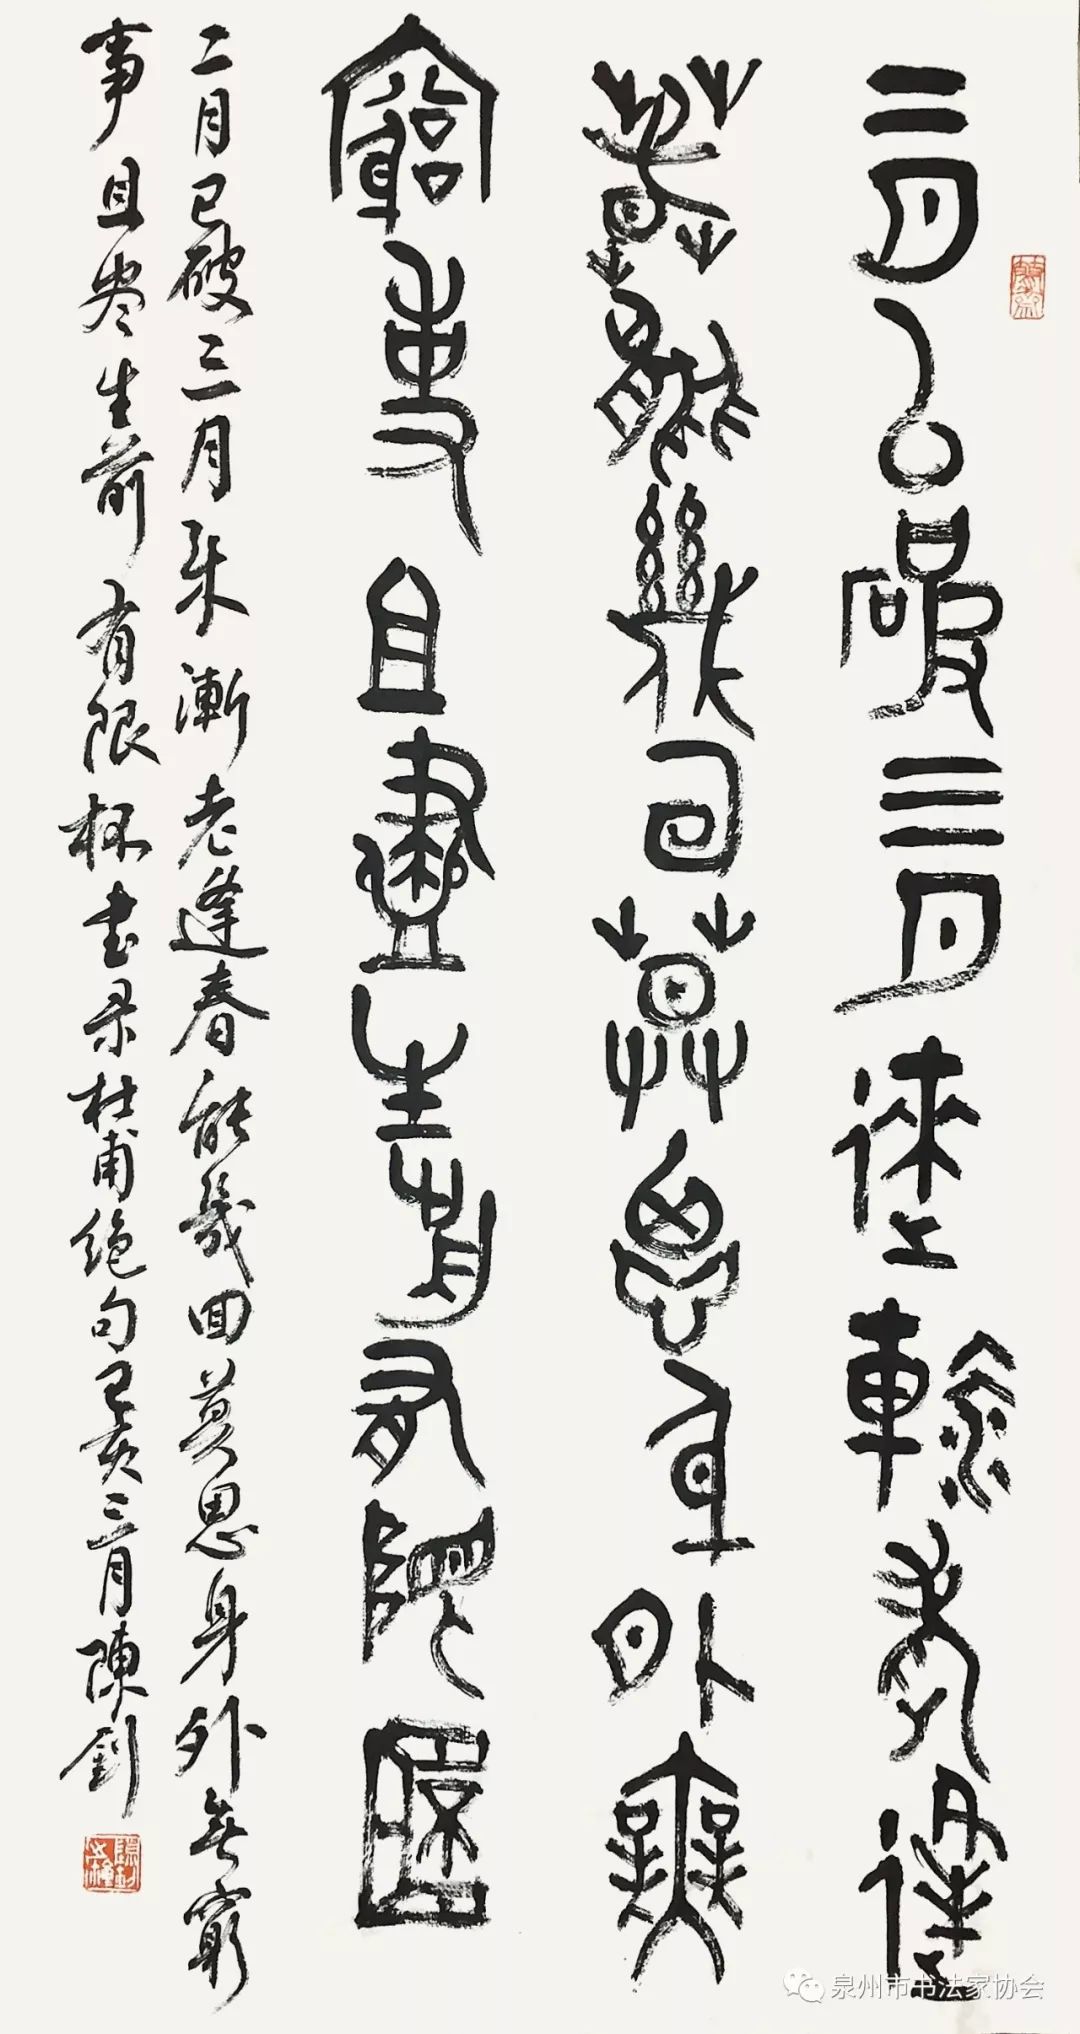 二月已破三月來漸老逢
春能幾回莫思身外無
窮事且盡生前有限杯
二月已破三月来漸老逢春能幾回莫思身外無窮
事且尽生前有限杯书录杜甫绝句己亥三月陳釗
泉州市书法家协会